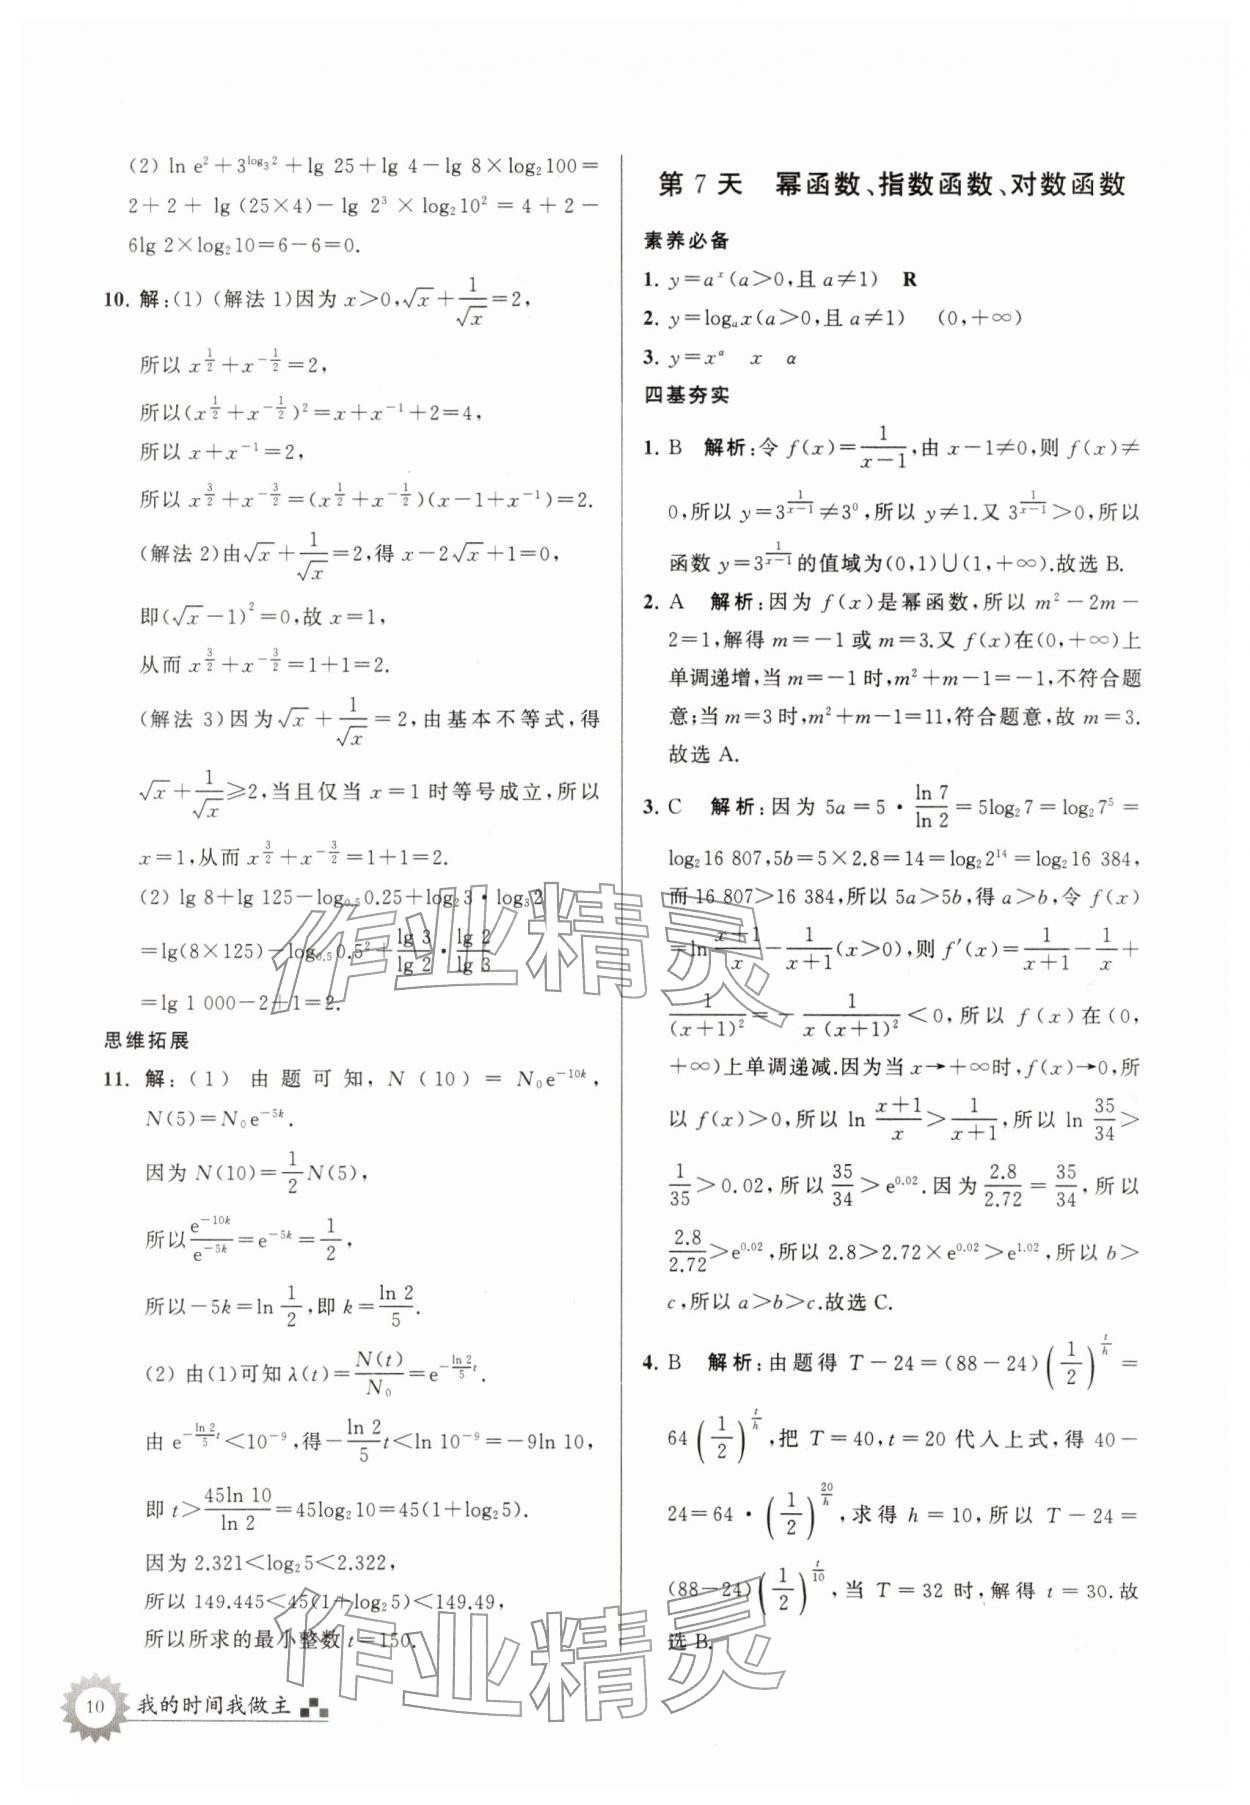 (2) ln e²+3^{log₃2}+lg 25+lg 4-lg 8×log₂100=
2+2+lg(25×4)-lg 2³×log₂10²=4+2-
6lg 2×log₂10=6-6=0.
10. 解:(1)(解法1)因为 x>0,√x+1/√x=2,
所以 x^{1/2}+x^{-1/2}=2,
所以(x^{1/2}+x^{-1/2})²=x+x⁻¹+2=4,
所以 x+x⁻¹=2,
所以 x^{3/2}+x^{-3/2}=(x^{1/2}+x^{-1/2})(x-1+x⁻¹)=2.
(解法2)由√x+1/√x=2,得 x-2√x+1=0,
即(√x-1)²=0,故 x=1,
从而 x^{3/2}+x^{-3/2}=1+1=2.
(解法3)因为√x+1/√x=2,由基本不等式,得
√x+1/√x≥2,当且仅当 x=1 时等号成立,所以
x=1,从而 x^{3/2}+x^{-3/2}=1+1=2.
(2) lg 8+lg 125-log_{0.5}0.25+log₂3·log₃2
=lg(8×125)-log_{0.5}0.5²+(lg 3/lg 2)·(lg 2/lg 3)
=lg 1 000-2+1=2.
思维拓展
11. 解:(1) 由题可知,N(10)=N₀e^{-10k},
N(5)=N₀e^{-5k}.
因为 N(10)=1/2 N(5),
所以 e^{-10k}/e^{-5k}=e^{-5k}=1/2,
所以-5k=ln 1/2,即 k=ln 2/5.
(2) 由(1)可知 λ(t)=N(t)/N₀=e^{-(ln 2/5)t}.
由 e^{-(ln 2/5)t}<10⁻⁹,得-(ln 2/5)t<ln 10⁻⁹=-9ln 10,
即 t>45ln 10/ln 2=45log₂10=45(1+log₂5).
因为 2.321<log₂5<2.322,
所以 149.445<45(1+log₂5)<149.49,
所以所求的最小整数 t=150.
10 我的时间我做主
第7天 幂函数、指数函数、对数函数
素养必备
1. y=aˣ(a>0,且 a≠1) R
2. y=logₐx(a>0,且 a≠1) (0,+∞)
3. y=x^α x α
四基夯实
1. B 解析:令 f(x)=1/(x-1),由 x-1≠0,则 f(x)≠
0,所以 y=3^{1/(x-1)}≠3⁰,所以 y≠1.又 3^{1/(x-1)}>0,所以
函数 y=3^{1/(x-1)}的值域为(0,1)∪(1,+∞).故选 B.
2. A 解析:因为 f(x)是幂函数,所以 m²-2m-
2=1,解得 m=-1 或 m=3.又 f(x)在(0,+∞)上
单调递增,当 m=-1 时,m²+m-1=-1,不符合题
意;当 m=3 时,m²+m-1=11,符合题意,故 m=3.
故选 A.
3. C 解析:因为 5a=5·ln 7/ln 2=5log₂7=log₂7⁵=
log₂16 807,5b=5×2.8=14=log₂2¹⁴=log₂16 384,
而 16 807>16 384,所以 5a>5b,得 a>b,令 f(x)
=ln (x+1)/x-1/(x+1)(x>0),则 f′(x)=1/(x+1)-1/x+
1/(x+1)²=-1/(x(x+1)²)<0,所以 f(x)在(0,
+∞)上单调递减.因为当 x→+∞时,f(x)→0,所
以 f(x)>0,所以 ln (x+1)/x>1/(x+1),所以 ln 35/34>
1/35>0.02,所以 35/34>e^{0.02}.因为 2.8/2.72=35/34,所以
2.8/2.72>e^{0.02},所以 2.8>2.72×e^{0.02}>e^{1.02},所以 b>
c,所以 a>b>c.故选 C.
4. B 解析:由题得 T-24=(88-24)(1/2)^{t/h}=
64(1/2)^{t/h},把 T=40,t=20 代入上式,得 40-
24=64·(1/2)^{20/h},求得 h=10,所以 T-24=
(88-24)(1/2)^{t/10},当 T=32 时,解得 t=30.故
选 B.
作业精灵
作业精灵